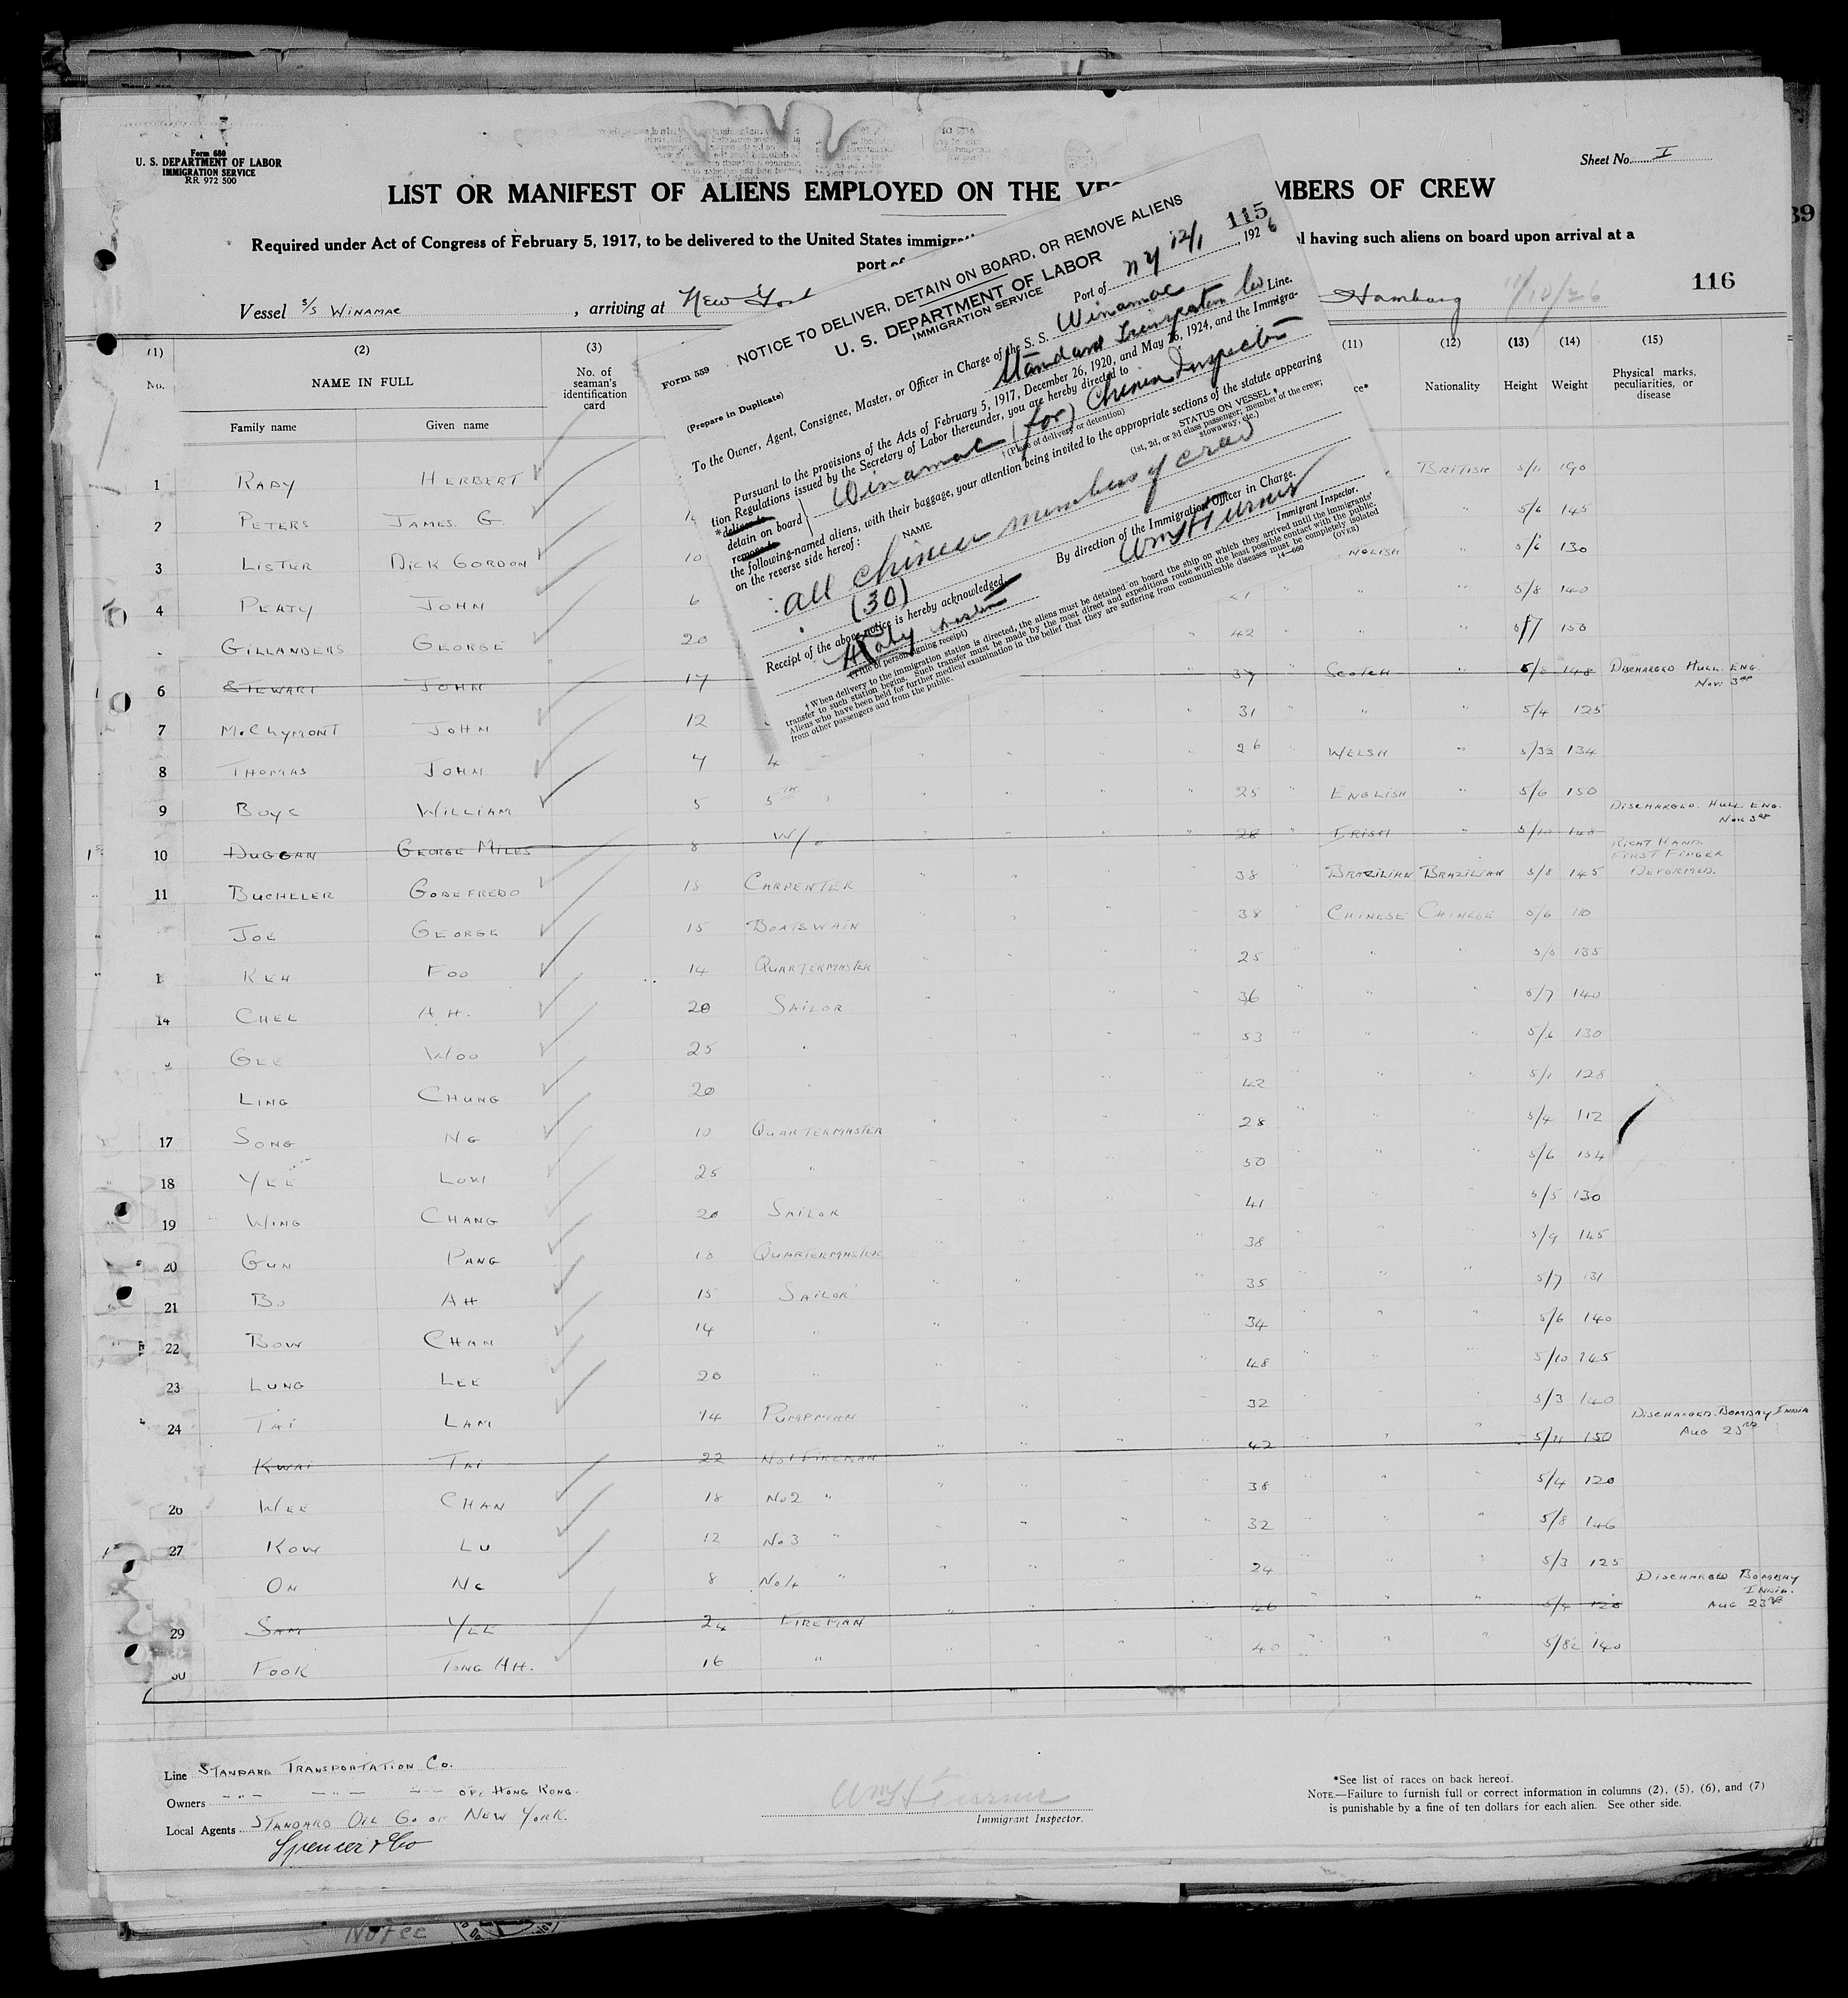 Form 680
U. S. DEPARTMENT OF LABOR
IMMIGRATION SERVICE
RR 972 500
Sheet No. I
LIST OR MANIFEST OF ALIENS EMPLOYED ON THE VES MBERS OF CREW
Required under Act of Congress of February 5, 1917, to be delivered to the United States immigrati l having such aliens on board upon arrival at a
port of
39
116
Vessel S/S WINAMAC, arriving at New York Hamburg 11/10/26
115
NOTICE TO DELIVER, DETAIN ON BOARD, OR REMOVE ALIENS
U. S. DEPARTMENT OF LABOR
IMMIGRATION SERVICE
Form 559
(Prepare in Duplicate)
Port of NY 12/1, 1926
To the Owner, Agent, Consignee, Master, or Officer in Charge of the S. S. Winamac
Standard Transportation Co Line.
Pursuant to the provisions of the Acts of February 5, 1917, December 26, 1920, and May 26, 1924, and the Immigra-
tion Regulations issued by the Secretary of Labor thereunder, you are hereby directed to
*deliver to
detain on board
remove to
Winamac (for) Chinese Inspector
† (Place of delivery or detention)
the following-named aliens, with their baggage, your attention being invited to the appropriate sections of the statute appearing
on the reverse side hereof:
NAME
STATUS ON VESSEL
(1st, 2d, or 3d class passenger; member of the crew;
stowaway, etc.)
all chinese members of crew
(30)
By direction of the Immigration Officer in Charge.
Wm H Turner
Immigrant Inspector.
Receipt of the above notice is hereby acknowledged
H Rady
(Title of person signing receipt)
†When delivery to the immigration station is directed, the aliens must be detained on board the ship on which they arrived until the immigrants'
transfer to such station begins. Such transfer must be made by the most direct and expeditious route with the least possible contact with the public.
Aliens who have been held for further medical examination in the belief that they are suffering from communicable diseases must be completely isolated
from other passengers and from the public.
14—660
(OVER)
(1) (2) (3) (11) (12) (13) (14) (15)
No. NAME IN FULL No. of seaman's identification card ce* Nationality Height Weight Physical marks, peculiarities, or disease
Family name Given name
1 RADY HERBERT BRITISH 5/11 190
2 PETERS JAMES G 5/6 145
3 LISTER DICK GORDON 10 NGLISH " 5/6 130
4 PEATY JOHN 6 " " 5/8 140
GILLANDERS GEORGE 20 " 42 " " " 5/7 150
6 STEWART JOHN 17 37 SCOTCH " 5/8 148 DISCHARGED HULL. ENG. Nov. 3rd
7 McClyMONT JOHN 12 " " " 31 " " " 5/4 125
8 THOMAS JOHN 4 4 " " " " 26 " WELSH " 5/3½ 134
9 BOYS WILLIAM 5 5TH " " " " 25 " ENGLISH " 5/6 150
10 DUGGAN GEORGE MILES 8 W/o " " " " 28 " IRISH " 5/10 148 DISCHARGED. HULL ENG. Nov 3rd
11 BUCHELER GODEFREDO 18 CARPENTER " " " 38 " BRAZILIAN BRAZILIAN 5/8 145 RIGHT HAND. FIRST FINGER DEFORMED.
JOE GEORGE 15 BOATSWAIN " " " 38 " CHINESE CHINESE 5/6 110
1 KEH FOO 14 QUARTERMASTER " " " 25 " 5/5 135
14 CHEL AH. 20 SAILOR " " " 36 " " 5/7 140
GEE WOO 25 " " " 53 " " " 5/6 130
LING CHUNG 20 " " " 42 " " " 5/1 128
17 SONG NG 10 QUARTERMASTER " " " 28 " " " 5/4 112
18 YEE LOUI 25 " " " 50 " " 5/6 154
19 WING CHANG 20 SAILOR " " 41 " 5/5 130
20 GUN PANG 18 QUARTERMASTER 38 " 5/9 145
21 BO AH 15 SAILOR " " " 35 " " 5/7 131
22 BOW CHAN 14 " " " 34 " " 5/6 140
23 LUNG LEE 20 " 48 " " 5/10 145
24 TAI LAM 14 PUMPMAN 32 " 5/3 140
KWAI TAI 22 No 1 FIREMAN " " " " 42 " " 5/11 150 DISCHARGED. BOMBAY INDIA Aug 23rd
26 WEE CHAN 18 No 2 " " " " " 38 " " 5/4 120
27 KOW LU 12 No 3 " " " " " 32 " " 5/8 146
ON NG 8 No 4 " " " " " 24 " " 5/3 125
29 SAM YEE 24 FIREMAN " " " 46 " " " 5/4 128 DISCHARGED BOMBAY INDIA. AUG 23rd
30 FOOK TONG AH. 16 " " " " " 40 " " " 5/8½ 140
Line STANDARD TRANSPORTATION Co.
Owners -"- -"- -"- OF, HONG KONG.
Local Agents STANDARD OIL Co OF NEW YORK.
Spencer & Co
Wm H Turner
Immigrant Inspector.
*See list of races on back hereof.
NOTE.—Failure to furnish full or correct information in columns (2), (5), (6), and (7)
is punishable by a fine of ten dollars for each alien. See other side.
Notce